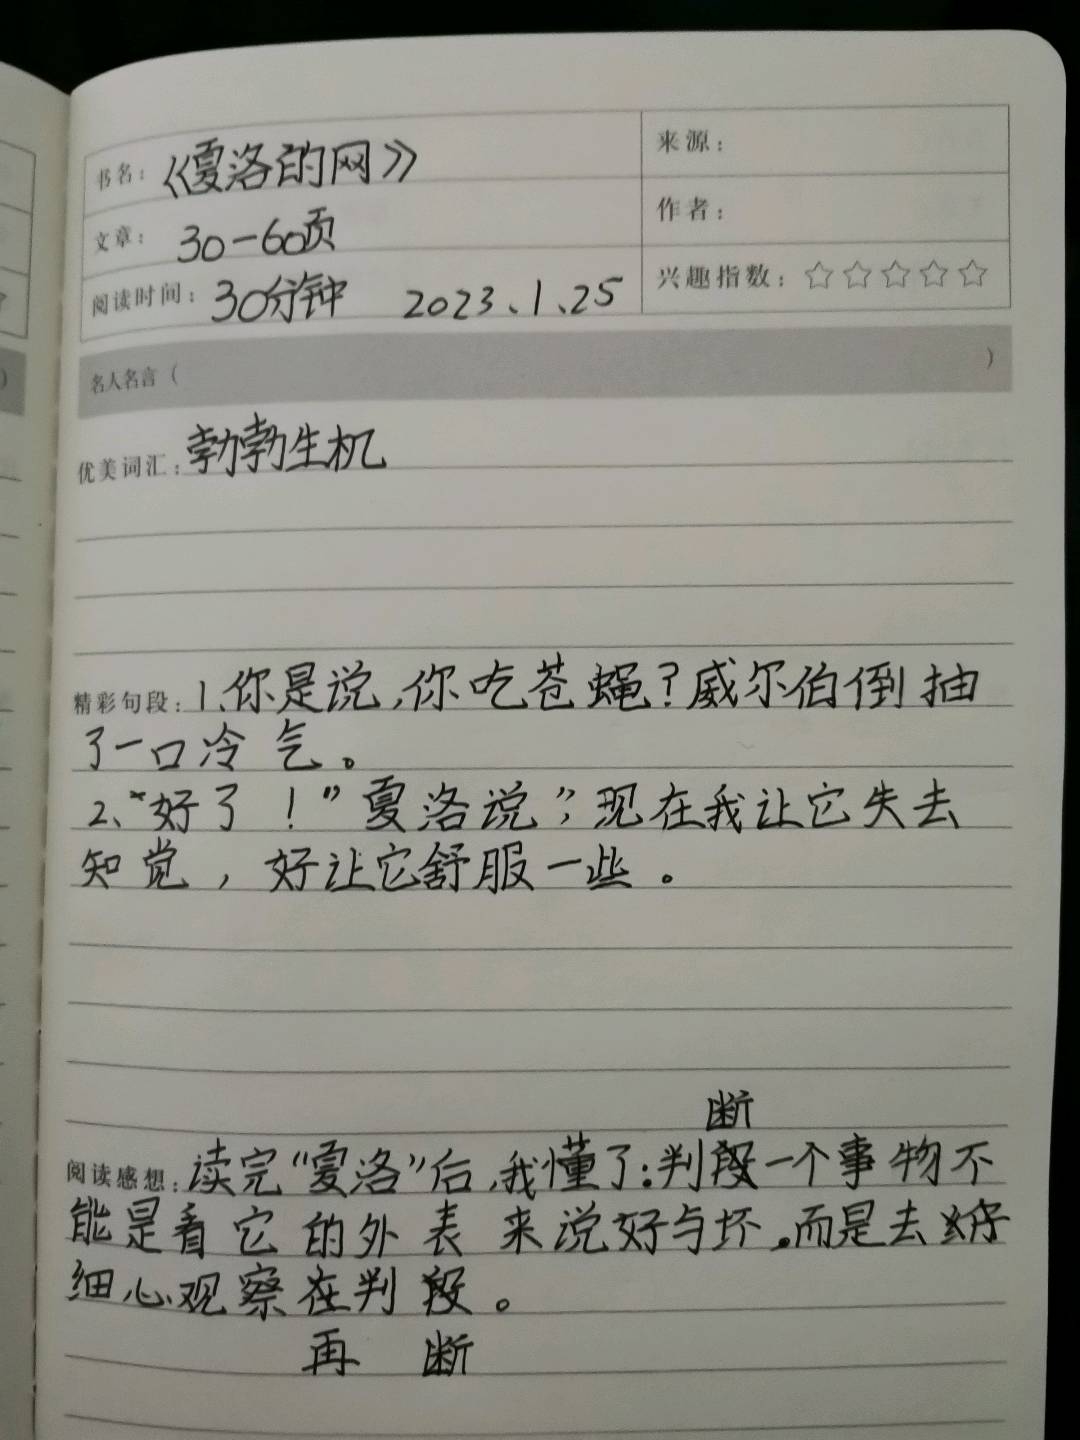 书名：《夏洛的网》
来源：
作者：
文章：30-60页
阅读时间：30分钟 2023、1、25
兴趣指数：☆☆☆☆☆
名人名言（ ）
优美词汇：勃勃生机
精彩句段：1、你是说，你吃苍蝇？威尔伯倒抽
了一口冷气。
2、“好了！”夏洛说，”现在我让它失去
知觉，好让它舒服一些。
断
阅读感想：读完“夏洛”后，我懂了：判段一个事物不
能是看它的外表来说好与坏。而是去
细心观察在判段。
再 断